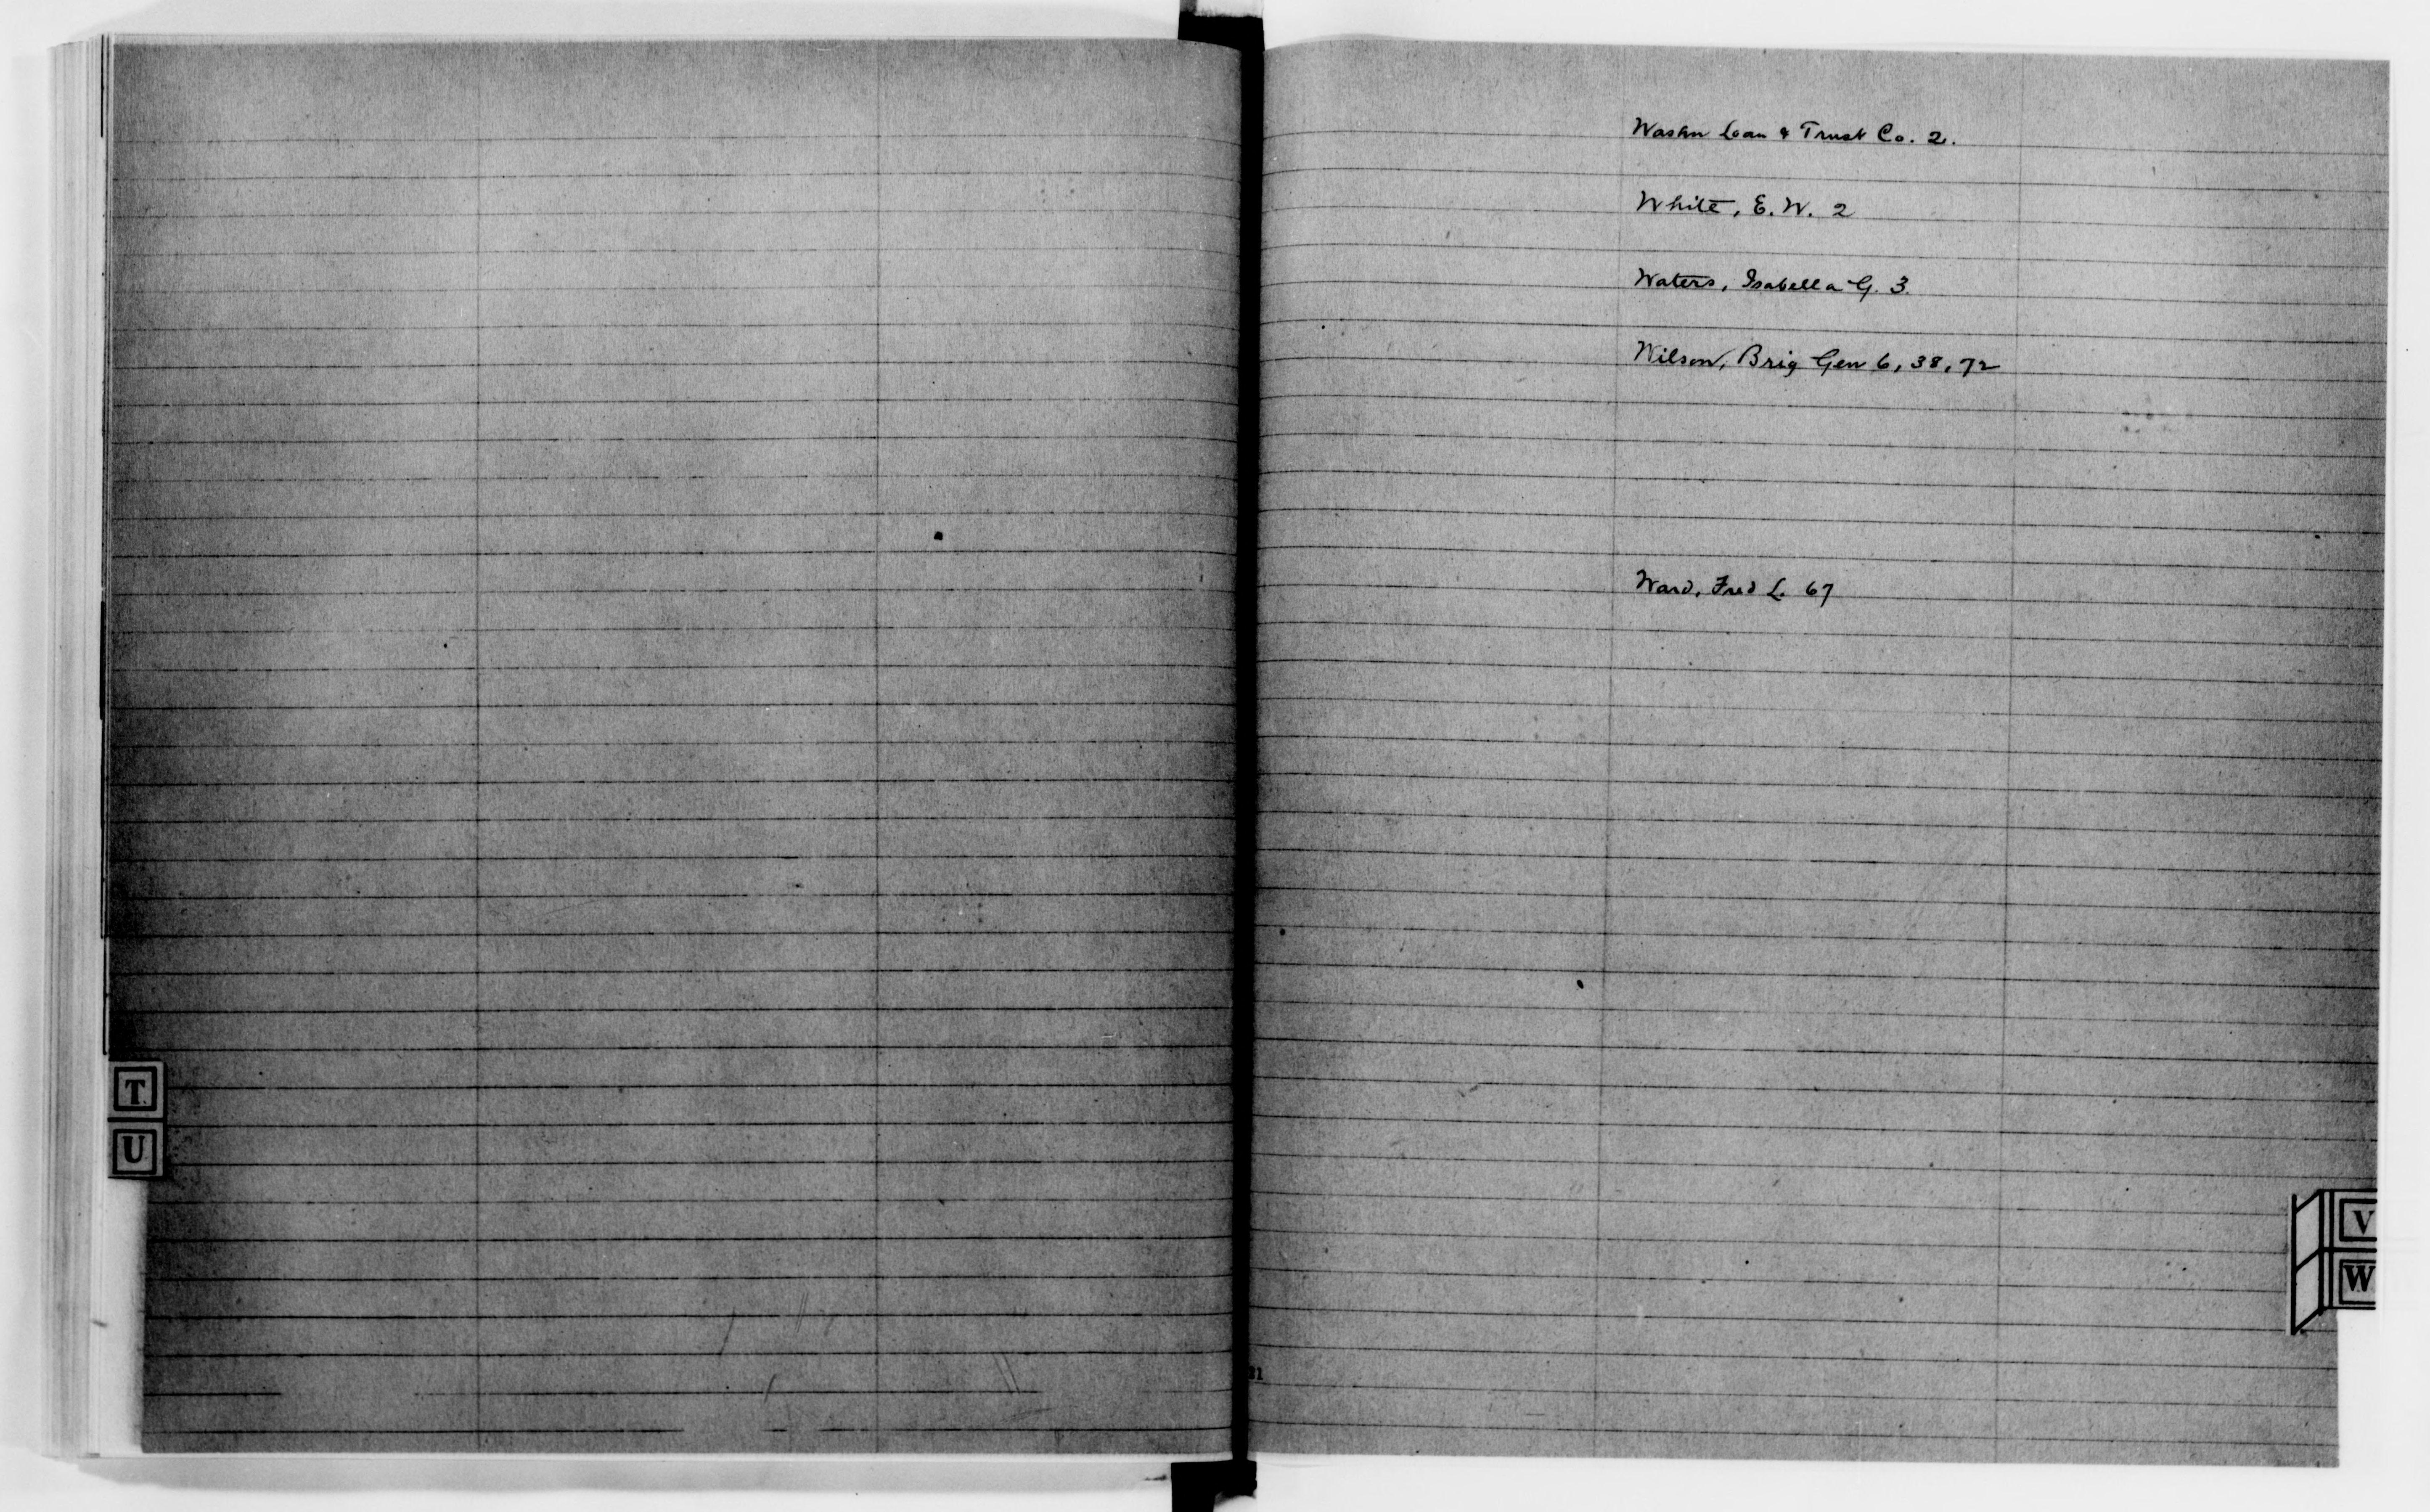 Washn Loan & Trust Co. 2.
White, E. W. 2
Waters, Isabella G. 3.
Wilson, Brig Gen 6, 38, 72
Ward, Fred L. 67
T.
U
V
W